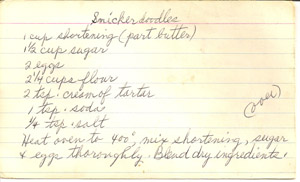 Snickerdoodles
1 cup shortening (part butter)
1½ cup sugar
2 eggs
2¼ cups flour
2 tsp. cream of tartar
1 tsp. soda
¼ tsp. salt
(over)
Heat oven to 400°, mix shortening, sugar
& eggs thoroughly. Blend dry ingredients.